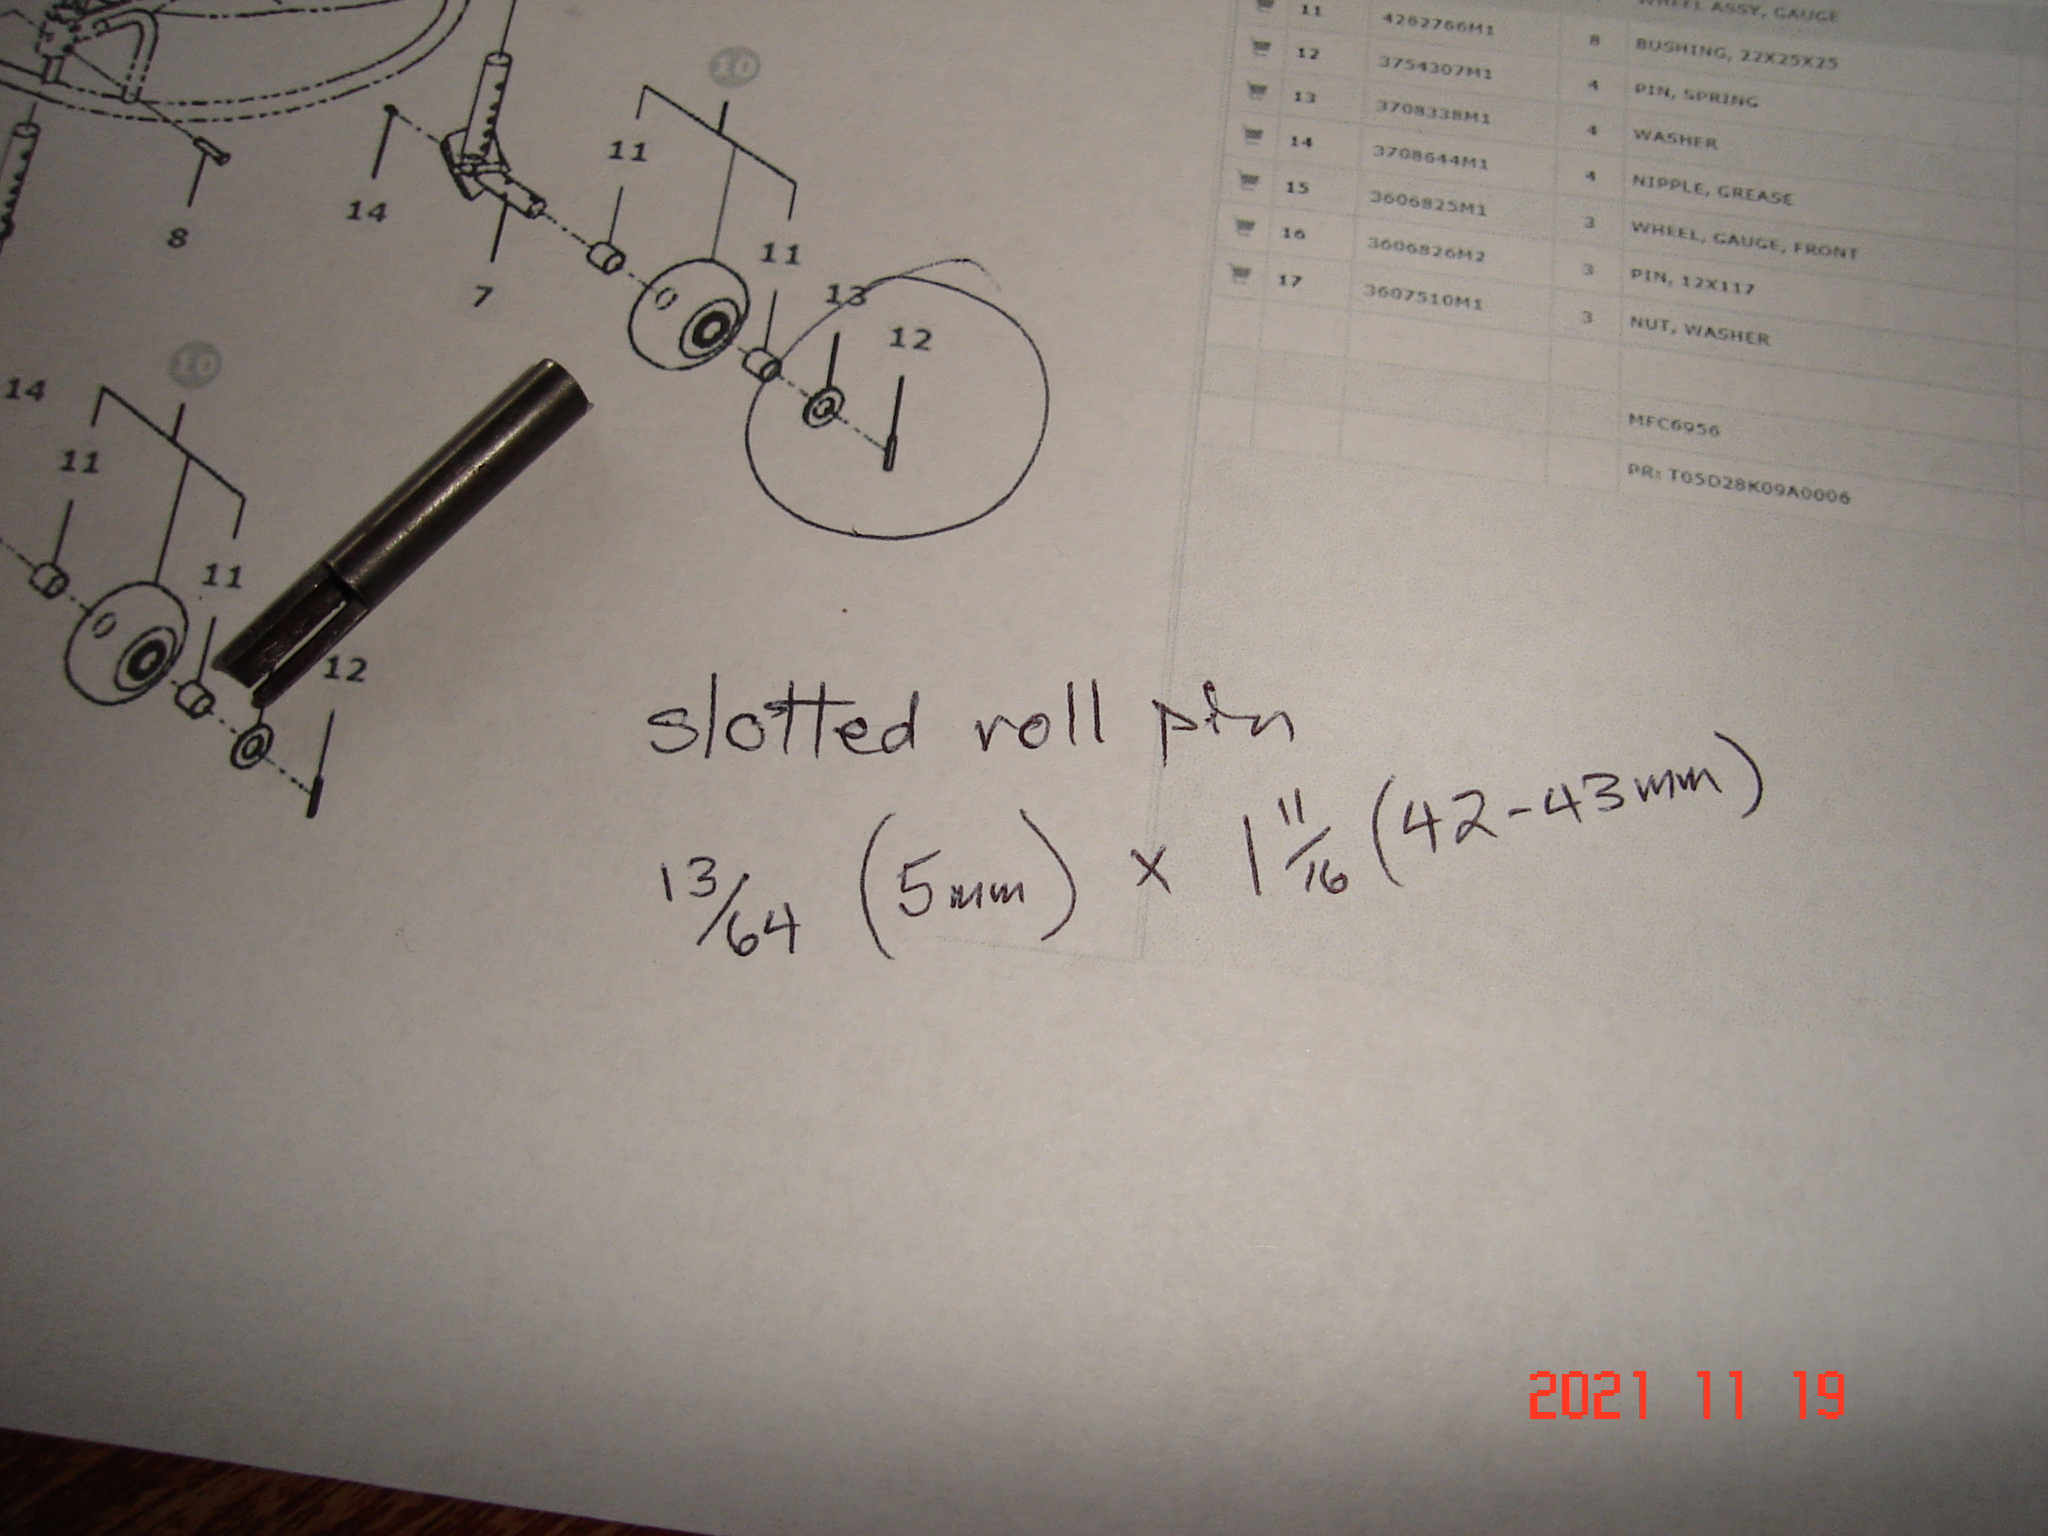 10
11
11
14
8
7
13
12
10
14
11
11
12
WHEEL ASSY, GAUGE
11 4262766M1 8 BUSHING, 22X25X25
12 3754307M1 4 PIN, SPRING
13 3708338M1 4 WASHER
14 3708644M1 4 NIPPLE, GREASE
15 3606825M1 3 WHEEL, GAUGE, FRONT
16 3606826M2 3 PIN, 12X117
17 3607510M1 3 NUT, WASHER
MFC6956
PR: T05D28K09A0006
slotted roll pin
13/64 (5mm) x 1 11/16 (42-43mm)
2021 11 19